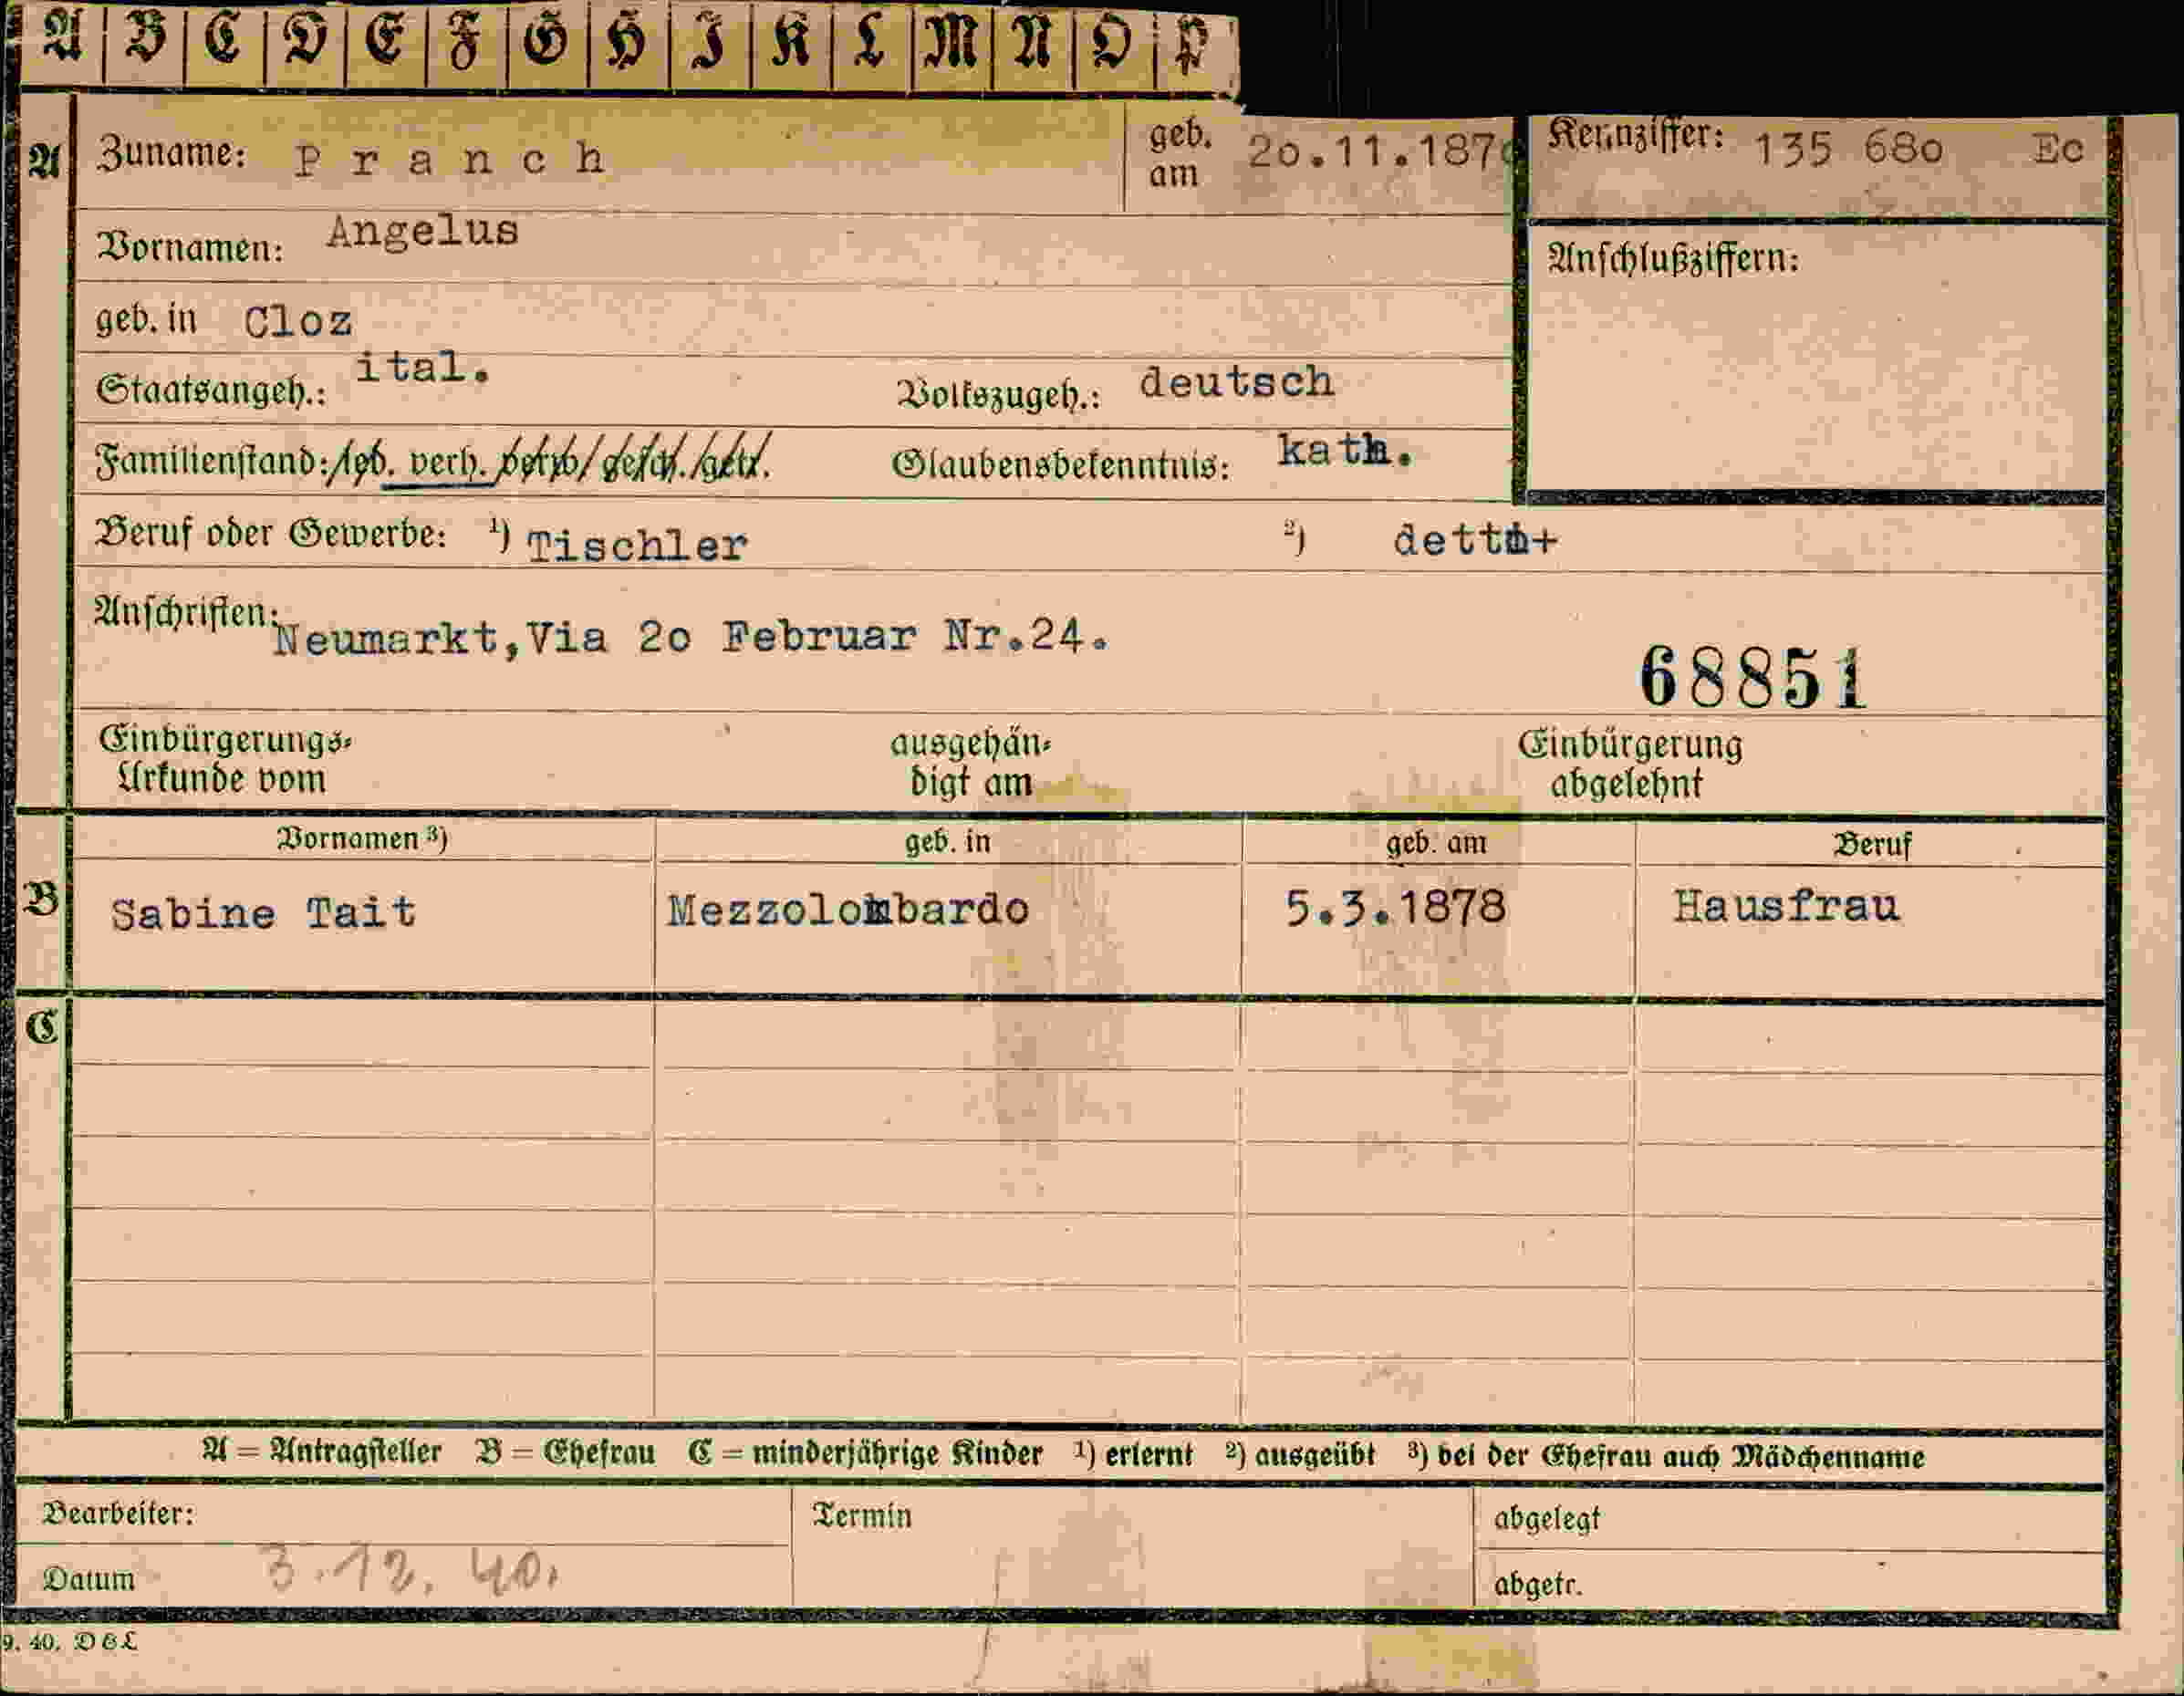 A B C D E F G H I K L M N O P
A Zuname: Pranch geb. am 20.11.187 Kennziffer: 135 680 Ec
Vornamen: Angelus Anschlußziffern:
geb. in Cloz
Staatsangeh.: ital. Volkszugeh.: deutsch
Familienstand: led. verh. verw. gesch. getr. Glaubensbekenntnis: kath.
Beruf oder Gewerbe: 1) Tischler 2) detto+
Anschriften: Neumarkt, Via 2o Februar Nr.24.
68851
Einbürgerungs- ausgehän- Einbürgerung
Urkunde vom digt am abgelehnt
Vornamen 3) geb. in geb. am Beruf
B Sabine Tait Mezzolombardo 5.3.1878 Hausfrau
C
A = Antragsteller B = Ehefrau C = minderjährige Kinder 1) erlernt 2) ausgeübt 3) bei der Ehefrau auch Mädchenname
Bearbeiter: Termin abgelegt
Datum 3.12.40. abgetr.
9. 40. D&L